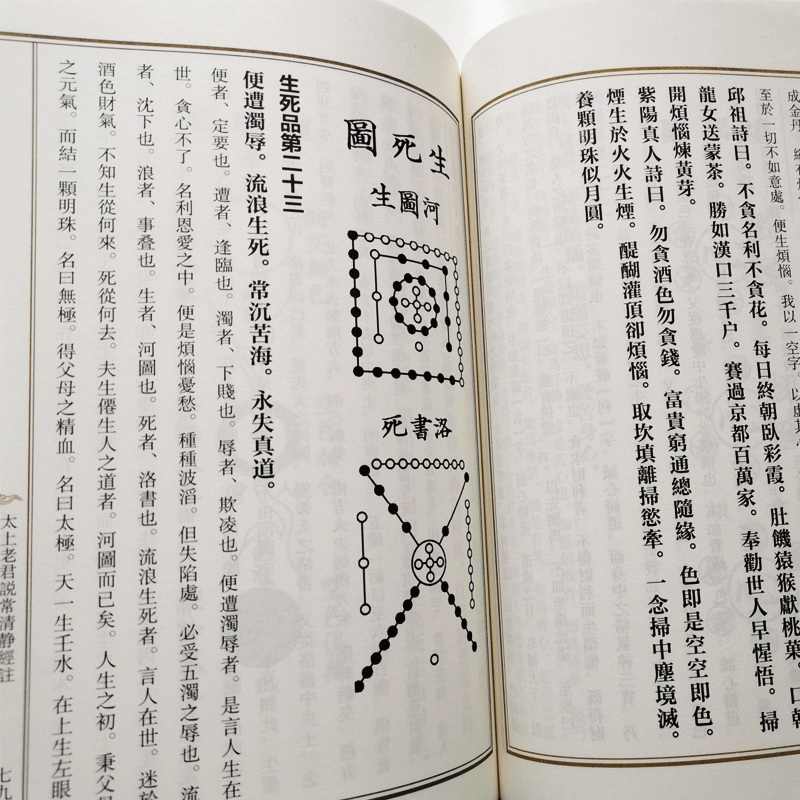 成金丹。
至於一切不如意處。便生煩惱。我以一空字。以處其心
邱祖詩曰。不貪名利不貪花。每日終朝臥彩霞。肚饑猿猴獻桃菓。口乾
龍女送蒙茶。勝如漢口三千户。賽過京都百萬家。奉勸世人早惺悟。掃
開煩惱煉黄芽。
紫陽真人詩曰。勿貪酒色勿貪錢。富貴窮通總隨緣。色即是空空即色。
煙生於火火生煙。醍醐灌頂卻煩惱。取坎填離掃慾牽。一念掃中塵境滅。
養顆明珠似月圓。
生死圖
河圖生
洛書死
生死品第二十三
便遭濁辱。流浪生死。常沉苦海。永失真道。
便者、定要也。遭者、逢臨也。濁者、下賤也。辱者、欺凌也。便遭濁辱者。是言人生在
世。貪心不了。名利恩愛之中。便是煩惱憂愁。種種波滔。但失陷處。必受五濁之辱也。流
者、沈下也。浪者、事叠也。生者、河圖也。死者、洛書也。流浪生死者。言人在世。迷於
酒色財氣。不知生從何來。死從何去。夫生僊生人之道者。河圖而已矣。人生之初。秉父母
之元氣。而結一顆明珠。名曰無極。得父母之精血。名曰太極。天一生壬水。在上生左眼
太上老君説常清静經註
七九